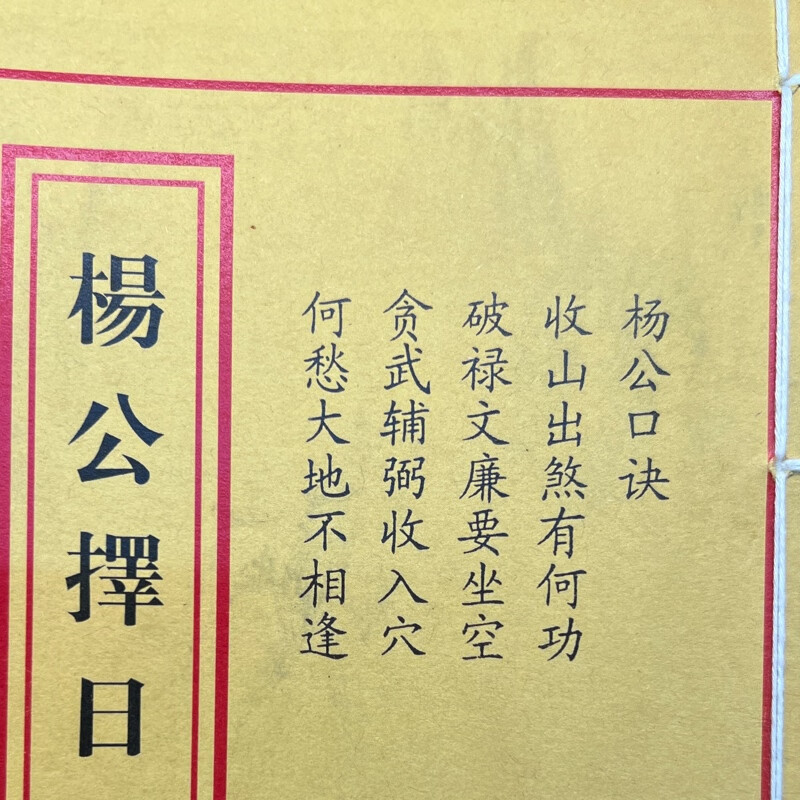 杨公口诀
收山出煞有何功
破禄文廉要坐空
贪武辅弼收入穴
何愁大地不相逢
楊公擇日